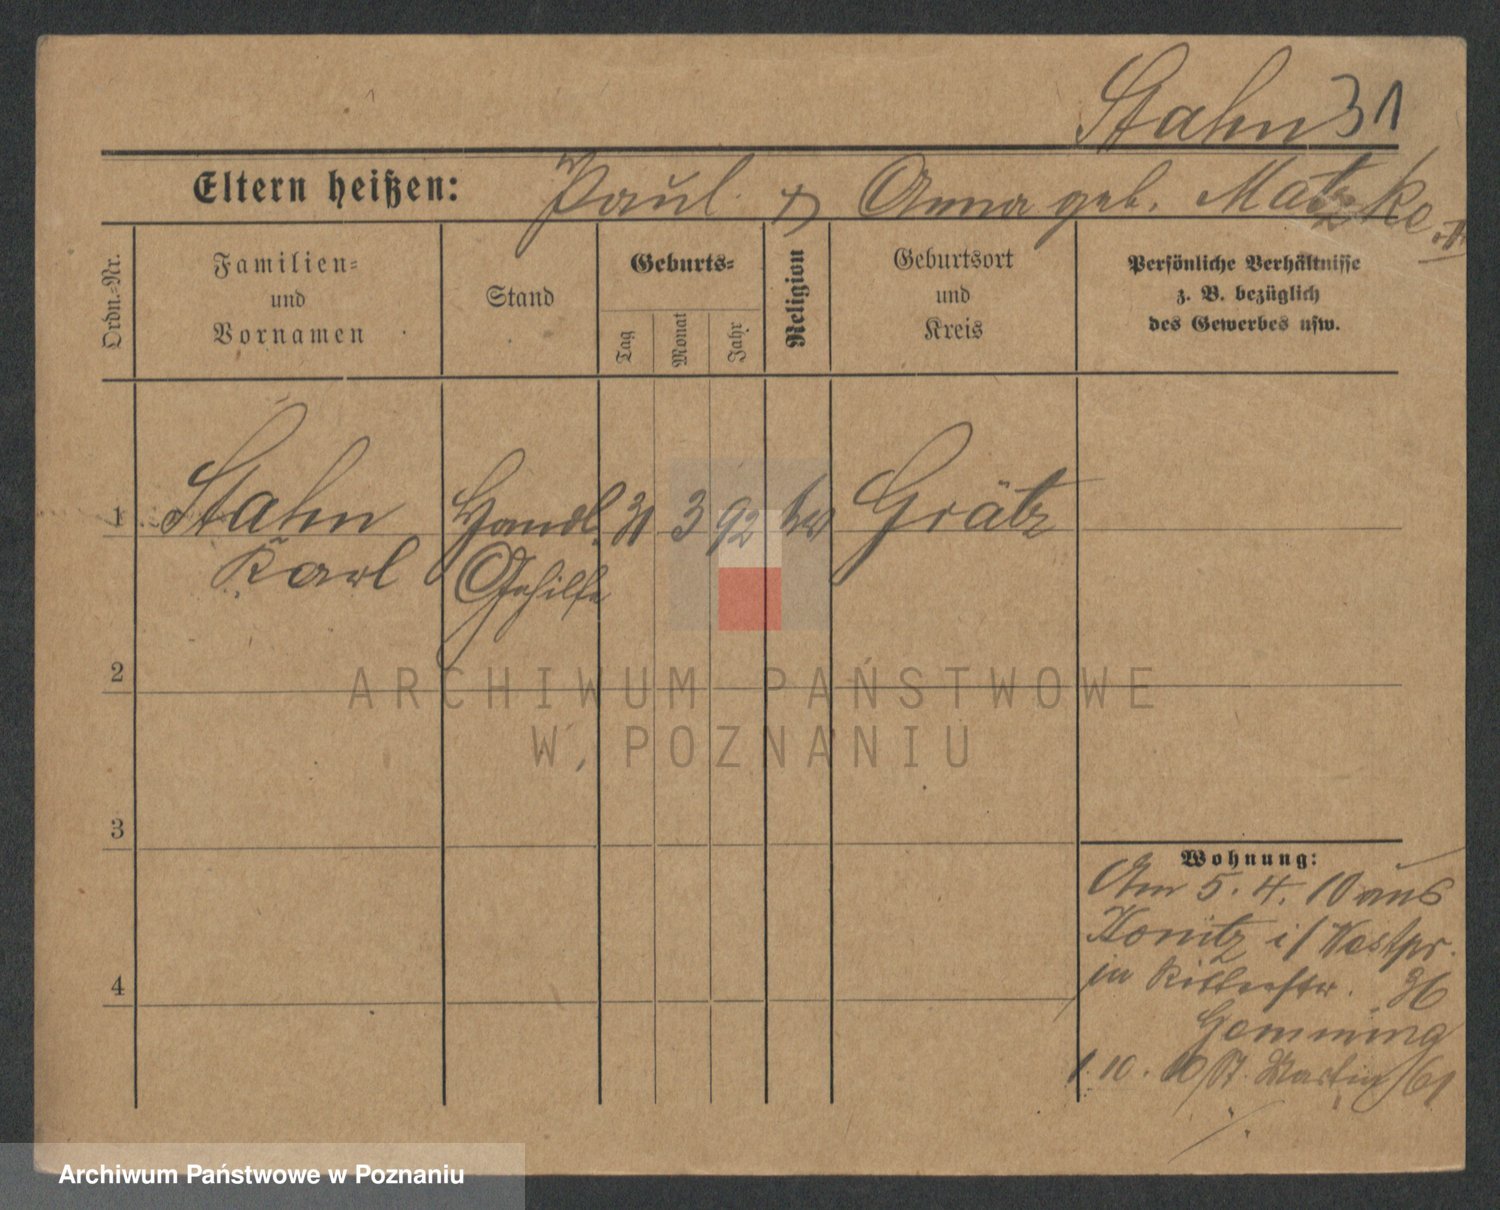 Stahn 31
Eltern heißen: Paul & Anna geb. Matzke
Ordn.-Nr.
Familien-
und
Vornamen
Stand
Geburts-
Tag
Monat
Jahr
Religion
Geburtsort
und
Kreis
Persönliche Verhältnisse
z. B. bezüglich
des Gewerbes usw.
1 Stahn Handl. 31 3 92 Grätz
Karl Gehilfe
2
ARCHIWUM PAŃSTWOWE
W POZNANIU
3
4
Wohnung:
Am 5. 4. 10 aus
Konitz i/ Westpr.
in Ritterstr. 36
1. 10. 10 St. Martin 61
Archiwum Państwowe w Poznaniu